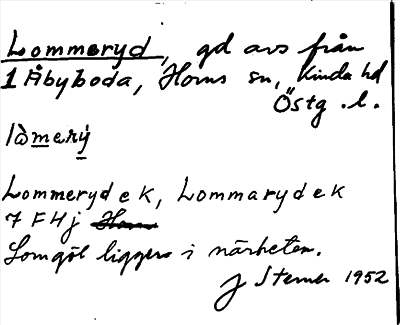 Lommeryd, gd avs från
1 Åbyboda, Horns sn, Kinda hd
Östg. l.
làmerý
Lommeryd ek, Lommaryd ek
7 F4j
Lomgöl ligger i närheten.
J Sterner 1952